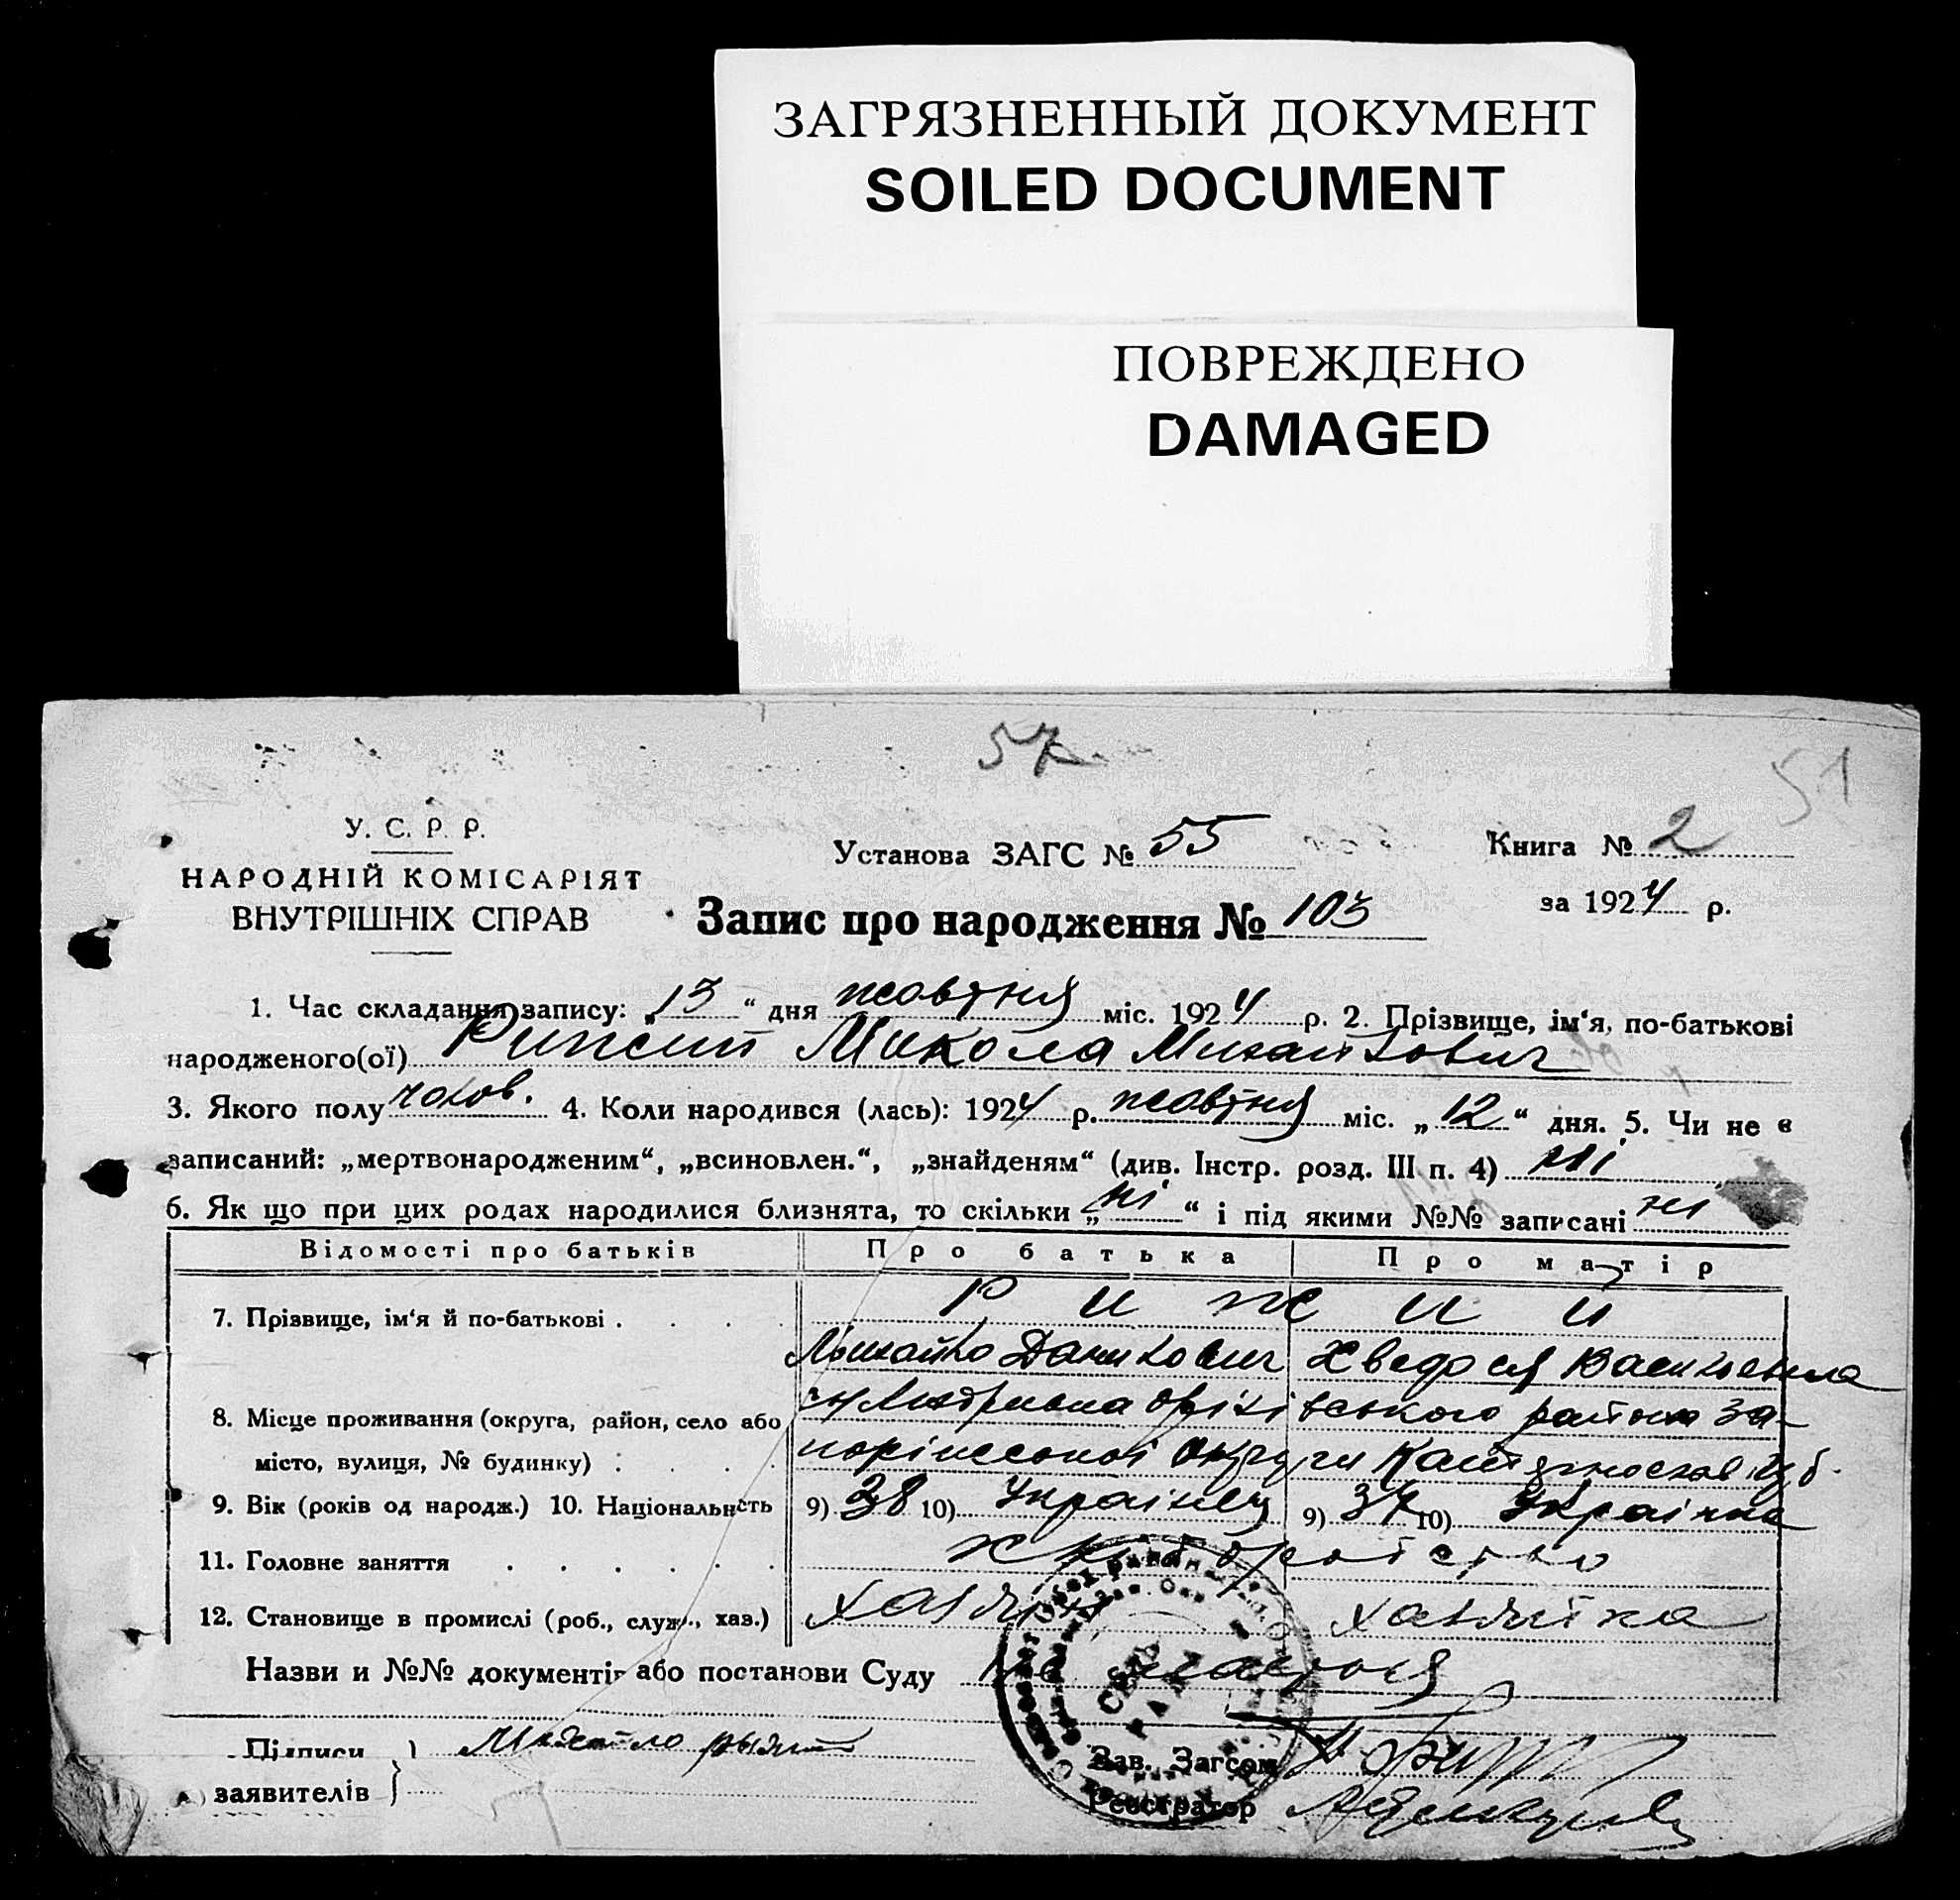 ЗАГРЯЗНЕННЫЙ ДОКУМЕНТ
SOILED DOCUMENT
ПОВРЕЖДЕНО
DAMAGED
57
51
У. С. Р. Р.
НАРОДНІЙ КОМІСАРІЯТ
ВНУТРІШНІХ СПРАВ
Установа ЗАГС № 55
Книга № 2
за 1924 р.
Запис про народження № 103
1. Час складання запису: „13“ дня жовтня міс. 1924 р. 2. Прізвище, ім‘я, по-батькові
народженого(ої) Рижий Микола Михайлович
3. Якого полу чолов. 4. Коли народився (лась): 1924 р. жовтня міс. „12“ дня. 5. Чи не є
записаний: „мертвонародженим“, „всиновлен.“, „знайденям“ (див. Інстр. розд. III п. 4) ні
6. Як що при цих родах народилися близнята, то скільки „ні“ і під якими №№ записані ні
Відомості про батьків Про батька Про матір
7. Прізвище, ім‘я й по-батькові . . . . Рижии
Михайло Данилович Хведося Васильевна
8. Місце проживання (округа, район, село або оріхівського района За-
місто, вулиця, № будинку) : . . . порізської округи Катеринослав губ.
9. Вік (років од народж.) 10. Національність 9) 38 10) Українец 9) 37 10) Українка
11. Головне заняття . . . . . . хліборобство
12. Становище в промислі (роб., служ., хаз.) хазяїн хазяйка
Назви и №№ документів або постанови Суду
Підписи
заявителів
Михайло рыжий
Зав. Загсом
Реєстратор